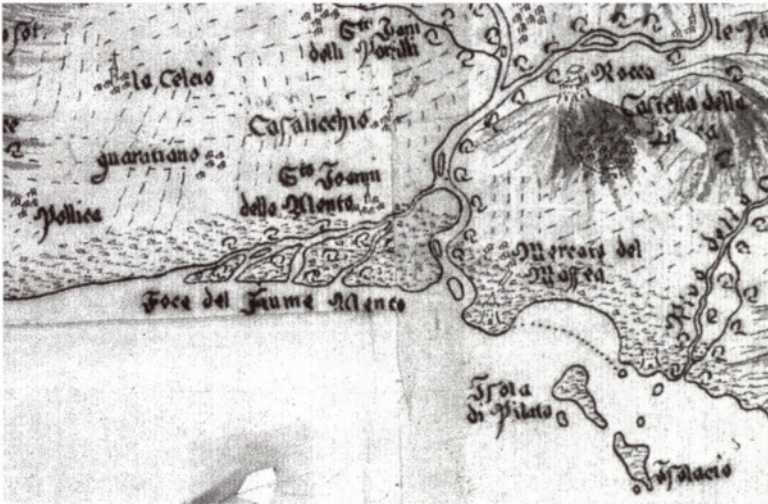 Sto Joan
delli Porcilli
Rocca
la Celcio
Castella della
Casalicchio
guaratiano
Sto Joanni
dello Alento
Pollica
Mercato del
Maffea
Foce del Fiume Alento
Isola
di Pilato
Isolacio